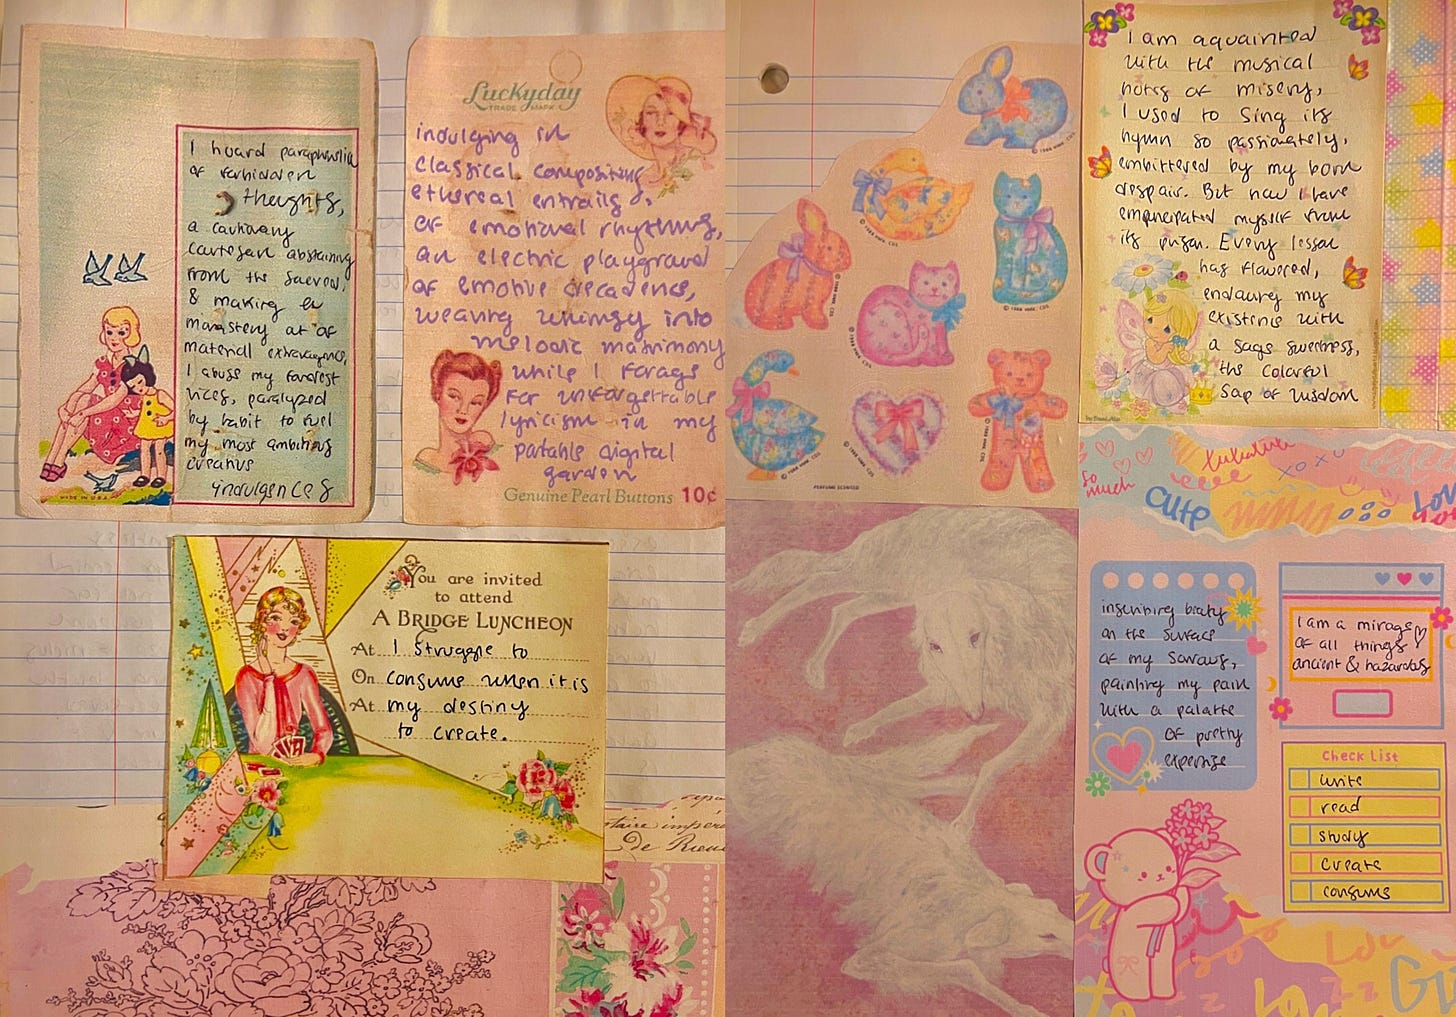 I hoard paraphernalia
of forbidden
thoughts,
a cautionary
courtesan abstaining
from the sacred,
& making a
monastery out of
material extravagance,
I abuse my fondest
vices, paralyzed
by habit to fuel
my most ambitious
creative
indulgences
MADE IN U.S.A.
Luckyday
TRADE MARK
indulging in
classical compositions,
ethereal entrails,
of emotional rhythms,
an electric playground
of emotive decadence,
weaving whimsy into
melodic matrimony
while I forage
for unforgettable
lyricism in my
portable digital
garden
Genuine Pearl Buttons 10¢
You are invited
to attend
A BRIDGE LUNCHEON
At I struggle to
On consume when it is
At my destiny
to create.
© 1989 HMK. CDS.
© 1989 HMK. CDS.
© 1989 HMK. CDS.
© 1989 HMK. CDS.
© 1989 HMK. CDS.
© 1989 HMK. CDS.
© 1989 HMK. CDS.
© 1989 HMK. CDS.
PERFUME SCENTED
I am aquainted
with the musical
notes of misery,
I used to sing its
hymn so passionately,
embittered by my born
despair. But now I have
emancipated myself from
its prison. Every lesson
has flavored,
enduring my
existence with
a sage sweetness,
the colorful
sap of wisdom
so
much
cute
xoxo
inscribing beauty
on the surface
of my sorrows,
painting my pain
with a palatte
of pretty
expertise
I am a mirage
of all things
ancient & hazardous
Check List
write
read
study
create
consume